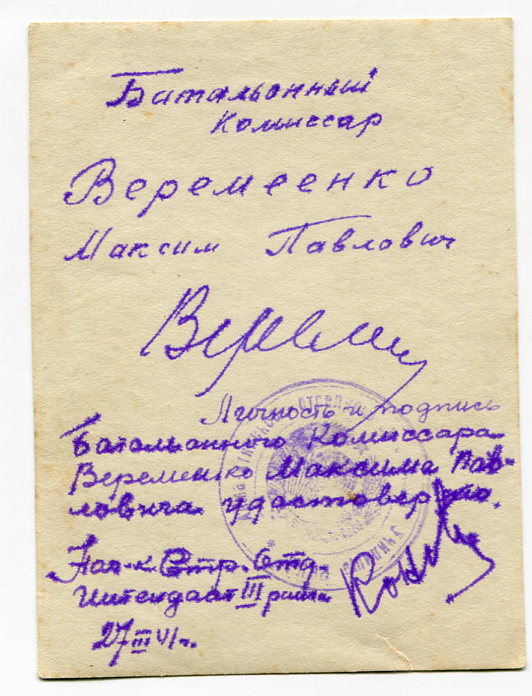 Батальонный
Комиссар
Веремеенко
Максим Павлович
Верем
Личность и подпись
Батальонного Комиссара
Веременко Максима Пав-
ловича удостоверяю.
Нач-к Стр. Отд.
Интендант III ранга
27 III 41 г.